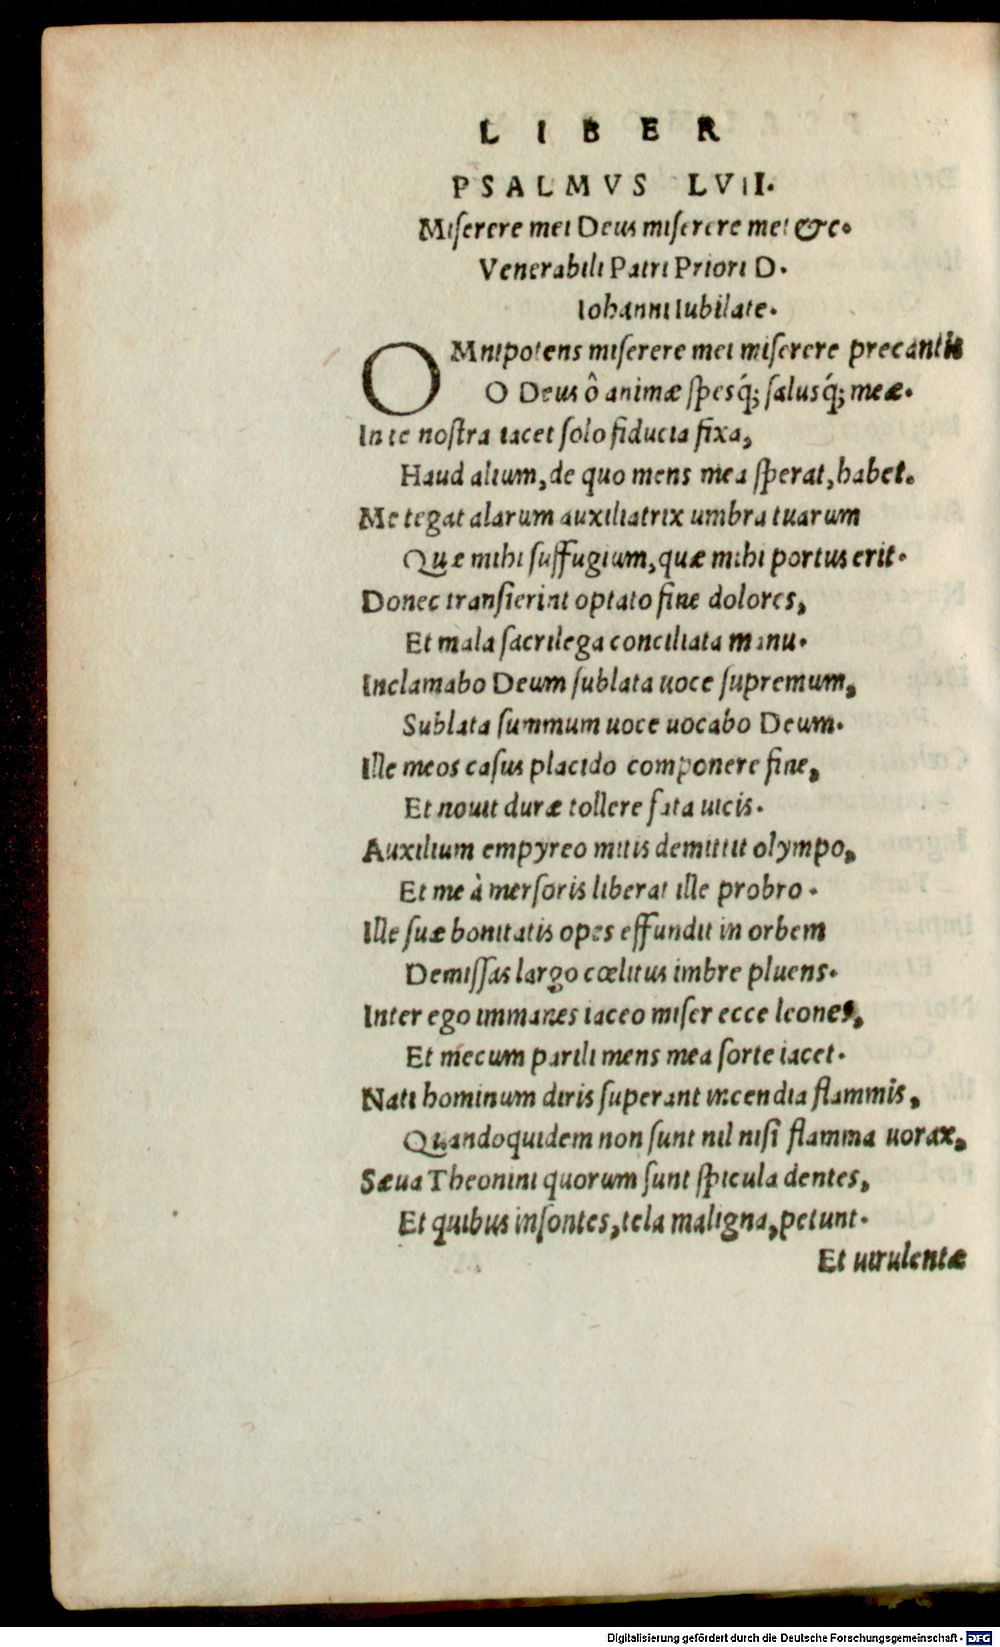 LIBER
PSALMVS LVII.
Miſerere mei Deus miſerere mei &c.
Venerabili Patri Priori D.
Iohanni Iubilate.
OMnipotens miſerere mei miſerere precantis
O Deus ô animæ ſpesq́; ſalusq́; meæ.
In te noſtra iacet ſolo fiducia fixa,
Haud alium, de quo mens mea ſperat, habet.
Me tegat alarum auxiliatrix umbra tuarum
Quæ mihi ſuffugium, quæ mihi portus erit.
Donec tranſierint optato fine dolores,
Et mala ſacrilega conciliata manu.
Inclamabo Deum ſublata uoce ſupremum,
Sublata ſummum uoce uocabo Deum.
Ille meos caſus placido componere fine,
Et nouit duræ tollere fata uicis.
Auxilium empyreo mitis demittit olympo,
Et me à merſoris liberat ille probro.
Ille ſuæ bonitatis opes effundit in orbem
Demiſſas largo cœlitus imbre pluens.
Inter ego immanes iaceo miſer ecce leones,
Et mecum parili mens mea ſorte iacet.
Nati hominum diris ſuperant incendia flammis,
Quandoquidem non ſunt nil niſi flamma uorax,
Sæua Theonini quorum ſunt ſpicula dentes,
Et quibus inſontes, tela maligna, petunt.
Et uirulentæ
Digitalisierung gefördert durch die Deutsche Forschungsgemeinschaft - DFG